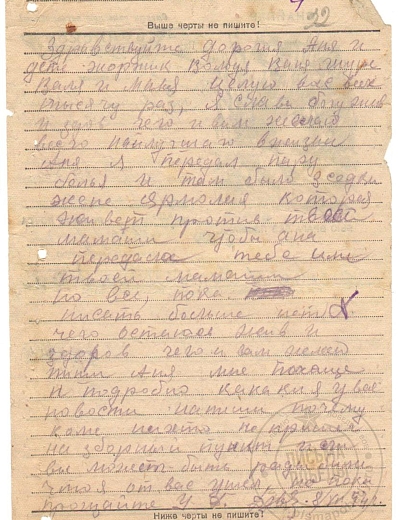 22
Выше черты не пишите!
Здравствуйте дорогия Аня и
дети жорик Володя Ваня шура
Валя и Маня целую вас всех
тысячу раз, я слава богу жив
и здоров чего и вам желаю
всего наилучшего в жизни
Аня я передал пару
белья и там было
жене ярмолия которая
живет против твоей
мамаши чтобы ана
передала тебе или
твоей мамаши
но все, пока.
писать больше нет
чего остаюся жив и
здоров чего и вам желаю
Аня мне
и подробно какия у вас
новости напиши почему
нихто не пришол
на зборный пункт
вы может быть
что я от вас ушел, но пока
прощайте
Ниже черты не пишите!